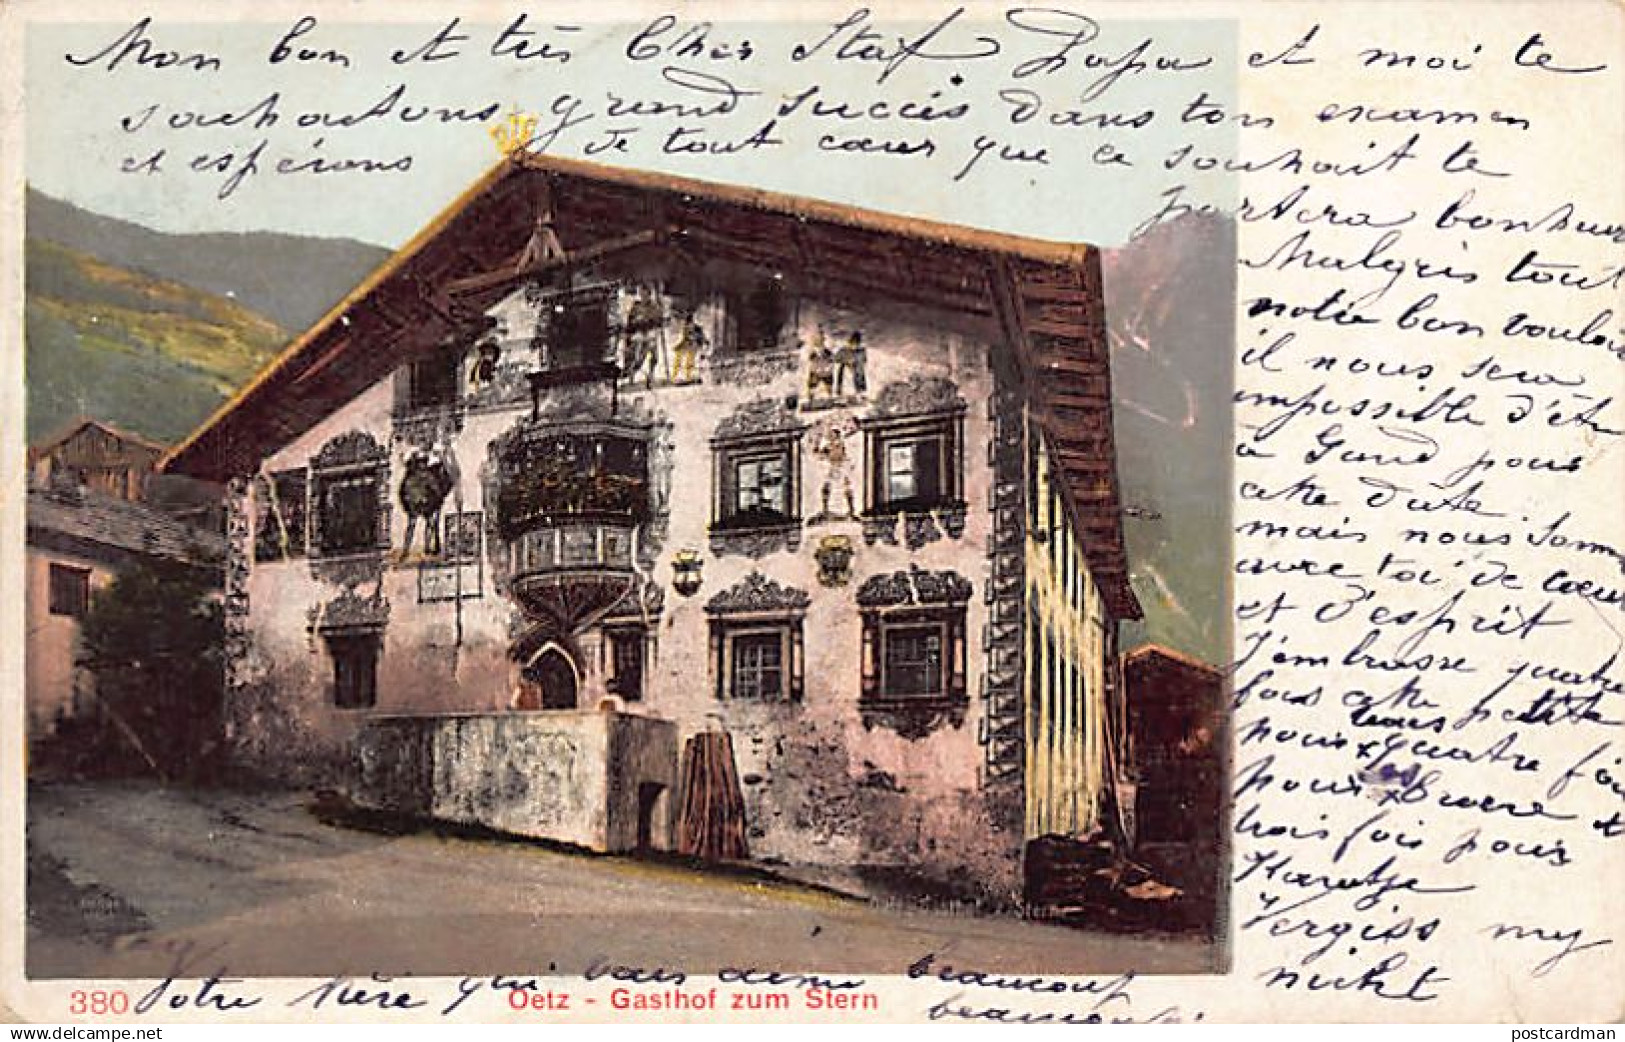 Mon bon et très Cher Staf Papa et moi te
souhaitons grand succès dans ton examen
et espérons de tout cœur que ce souhait te
portera bonheur
Malgrés tout
notre bon vouloir
il nous sera
impossible d'être
à Gand pour
cette date
mais nous somm
avec toi de cœur
et d'esprit
J'embrasse quatre
fois cette petite
pour vous quatre foi
pour
trois fois pour
Vergiss my
nicht
Votre Mère qui vous aime beaucoup
beaucoup
380
Oetz - Gasthof zum Stern
postcardman